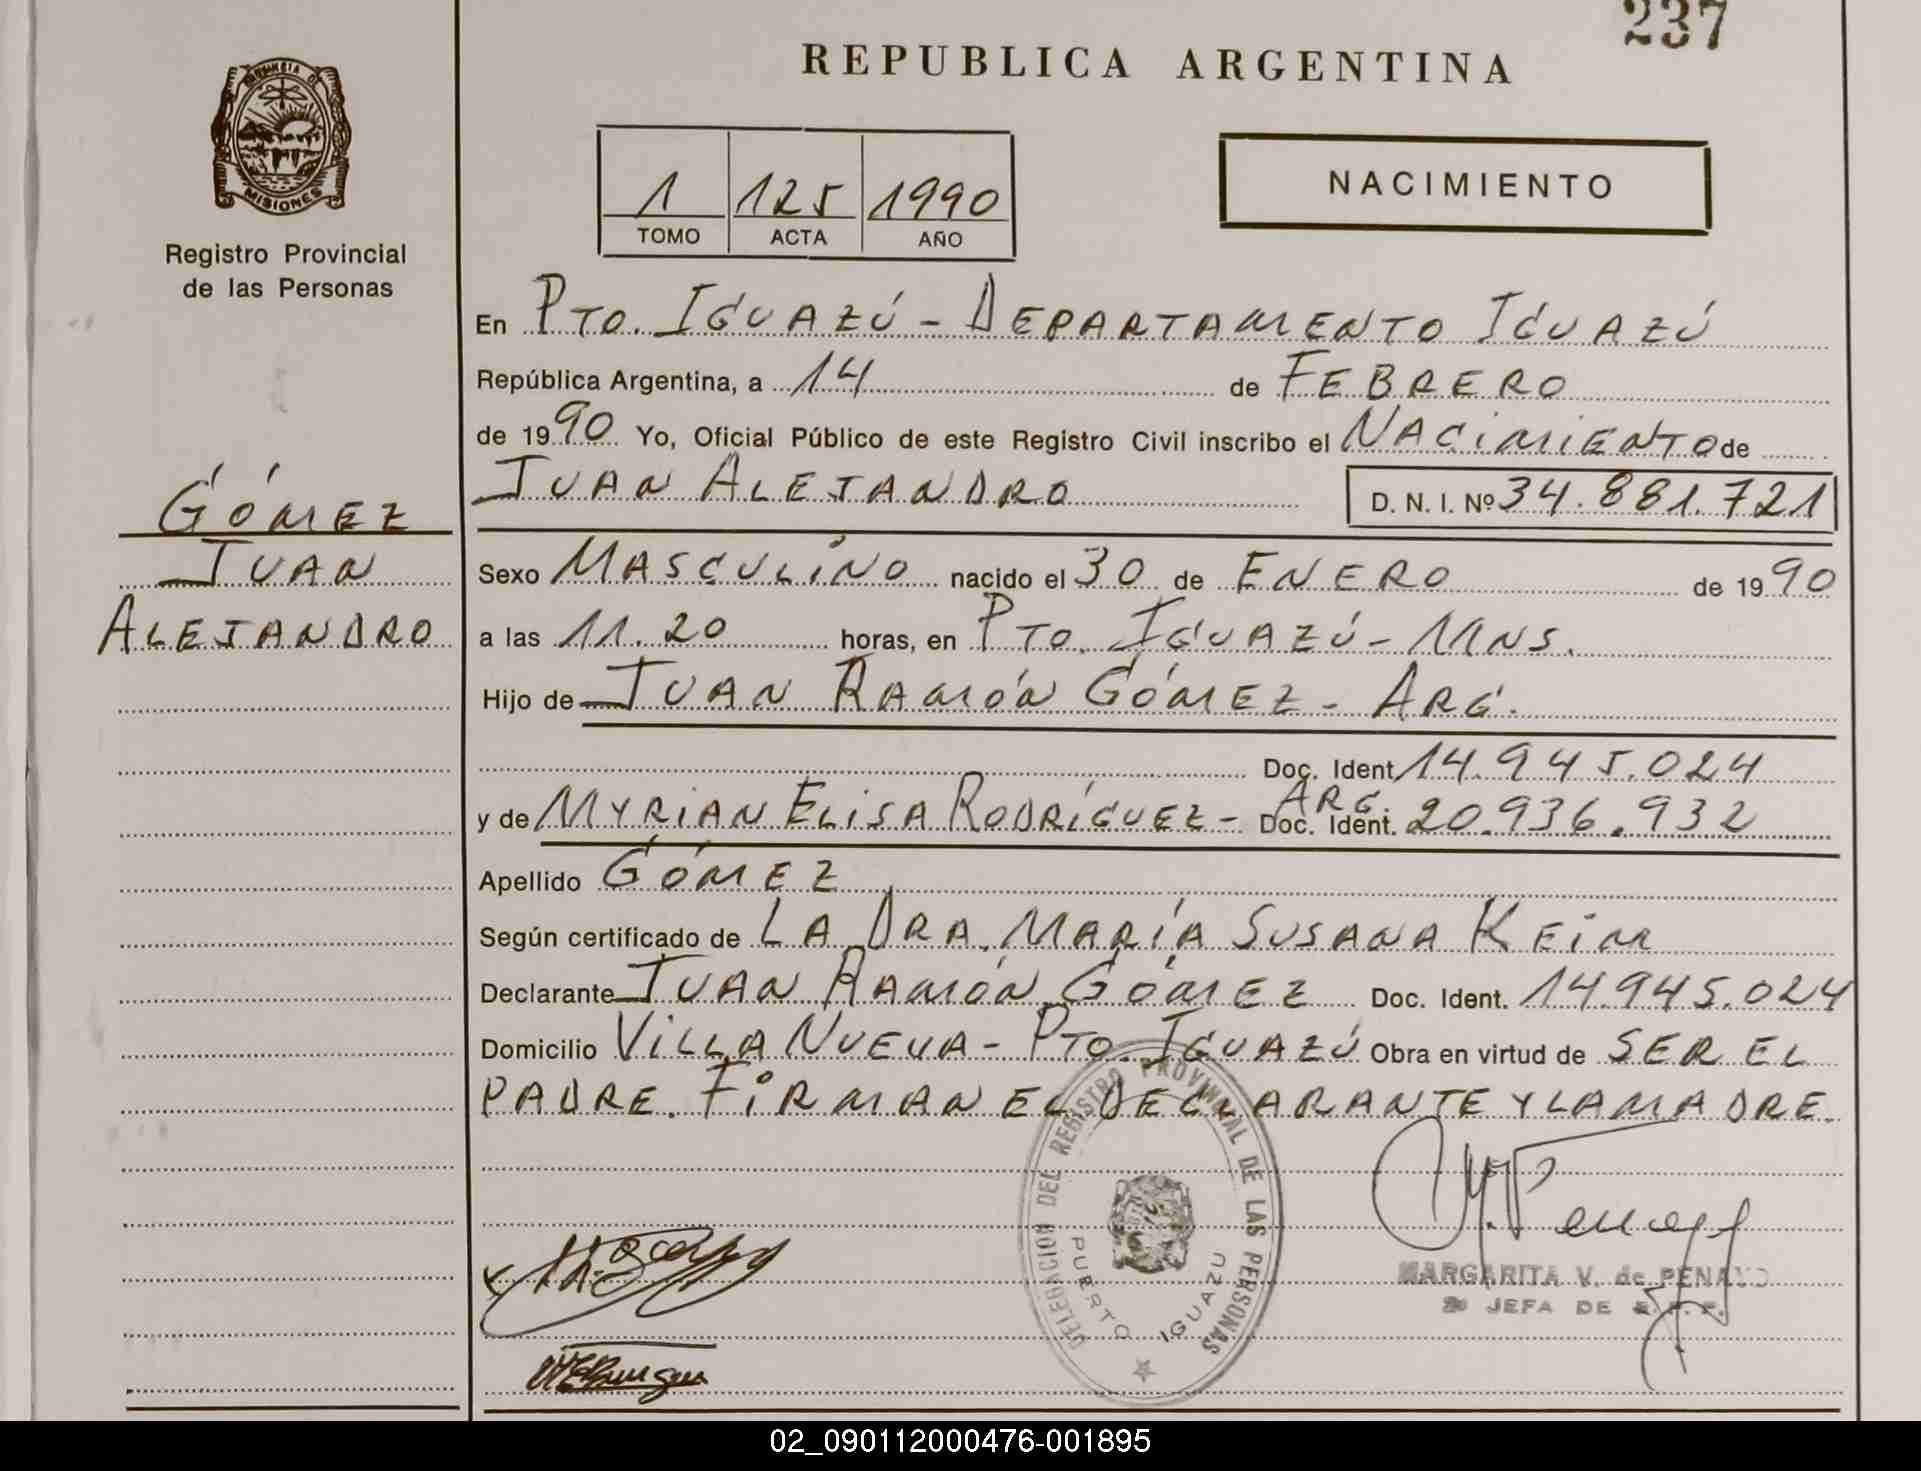 237
REPUBLICA ARGENTINA
PROVINCIA DE
MISIONES
Registro Provincial
de las Personas
1 125 1990
TOMO ACTA AÑO
NACIMIENTO
En PTO. IGUAZÚ - DEPARTAMENTO IGUAZÚ
República Argentina, a 14 de FEBRERO
de 1990 Yo, Oficial Público de este Registro Civil inscribo el NACIMIENTO de
JUAN ALEJANDRO D. N. I. Nº 34.881.721
GÓMEZ
JUAN
ALEJANDRO
Sexo MASCULINO nacido el 30 de ENERO de 1990
a las 11.20 horas, en PTO. IGUAZÚ - MNS.
Hijo de JUAN RAMÓN GÓMEZ - ARG.
Doc. Ident. 14.945.024
y de MYRIAN ELISA RODRÍGUEZ - ARG. Doc. Ident. 20.936.932
Apellido GÓMEZ
Según certificado de LA DRA. MARÍA SUSANA KEIM
Declarante JUAN RAMÓN GÓMEZ Doc. Ident. 14.945.024
Domicilio VILLA NUEVA - PTO. IGUAZÚ Obra en virtud de SER EL
PADRE. FIRMAN EL DECLARANTE Y LA MADRE.
DELEGACION DEL REGISTRO PROVINCIAL DE LAS PERSONAS
PUERTO IGUAZU
MARGARITA V. de PENAYO
JEFA DE
02_090112000476-001895